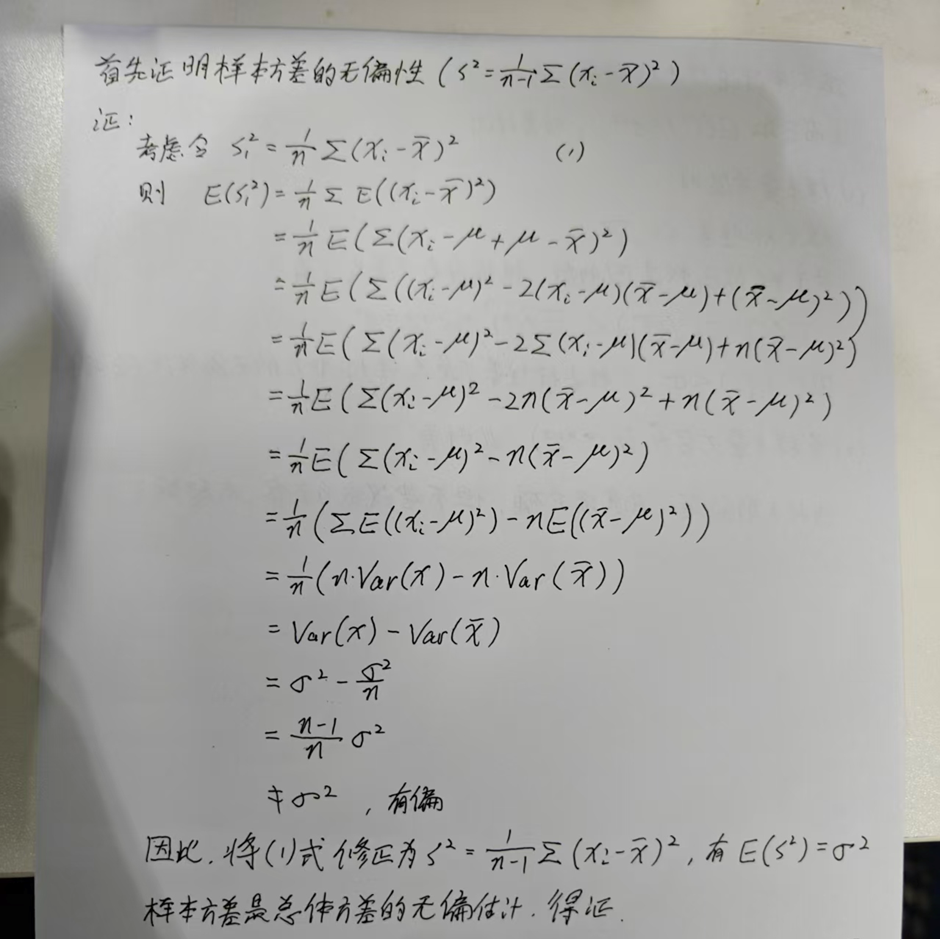 首先证明样本方差的无偏性 (S² = 1/(n-1) Σ (xᵢ - x̄)²)
证:
考虑令 S₁² = 1/n Σ(xᵢ - x̄)² (1)
则 E(S₁²) = 1/n Σ E((xᵢ - x̄)²)
= 1/n E(Σ(xᵢ - μ + μ - x̄)²)
= 1/n E(Σ((xᵢ - μ)² - 2(xᵢ - μ)(x̄ - μ) + (x̄ - μ)²))
= 1/n E(Σ(xᵢ - μ)² - 2Σ(xᵢ - μ)(x̄ - μ) + n(x̄ - μ)²)
= 1/n E(Σ(xᵢ - μ)² - 2n(x̄ - μ)² + n(x̄ - μ)²)
= 1/n E(Σ(xᵢ - μ)² - n(x̄ - μ)²)
= 1/n (ΣE((xᵢ - μ)²) - nE((x̄ - μ)²))
= 1/n (n·Var(x) - n·Var(x̄))
= Var(x) - Var(x̄)
= σ² - σ²/n
= (n-1)/n σ²
≠ σ² , 有偏
因此, 将(1)式修正为 S² = 1/(n-1) Σ (xᵢ - x̄)², 有 E(S²) = σ²
样本方差是总体方差的无偏估计. 得证.